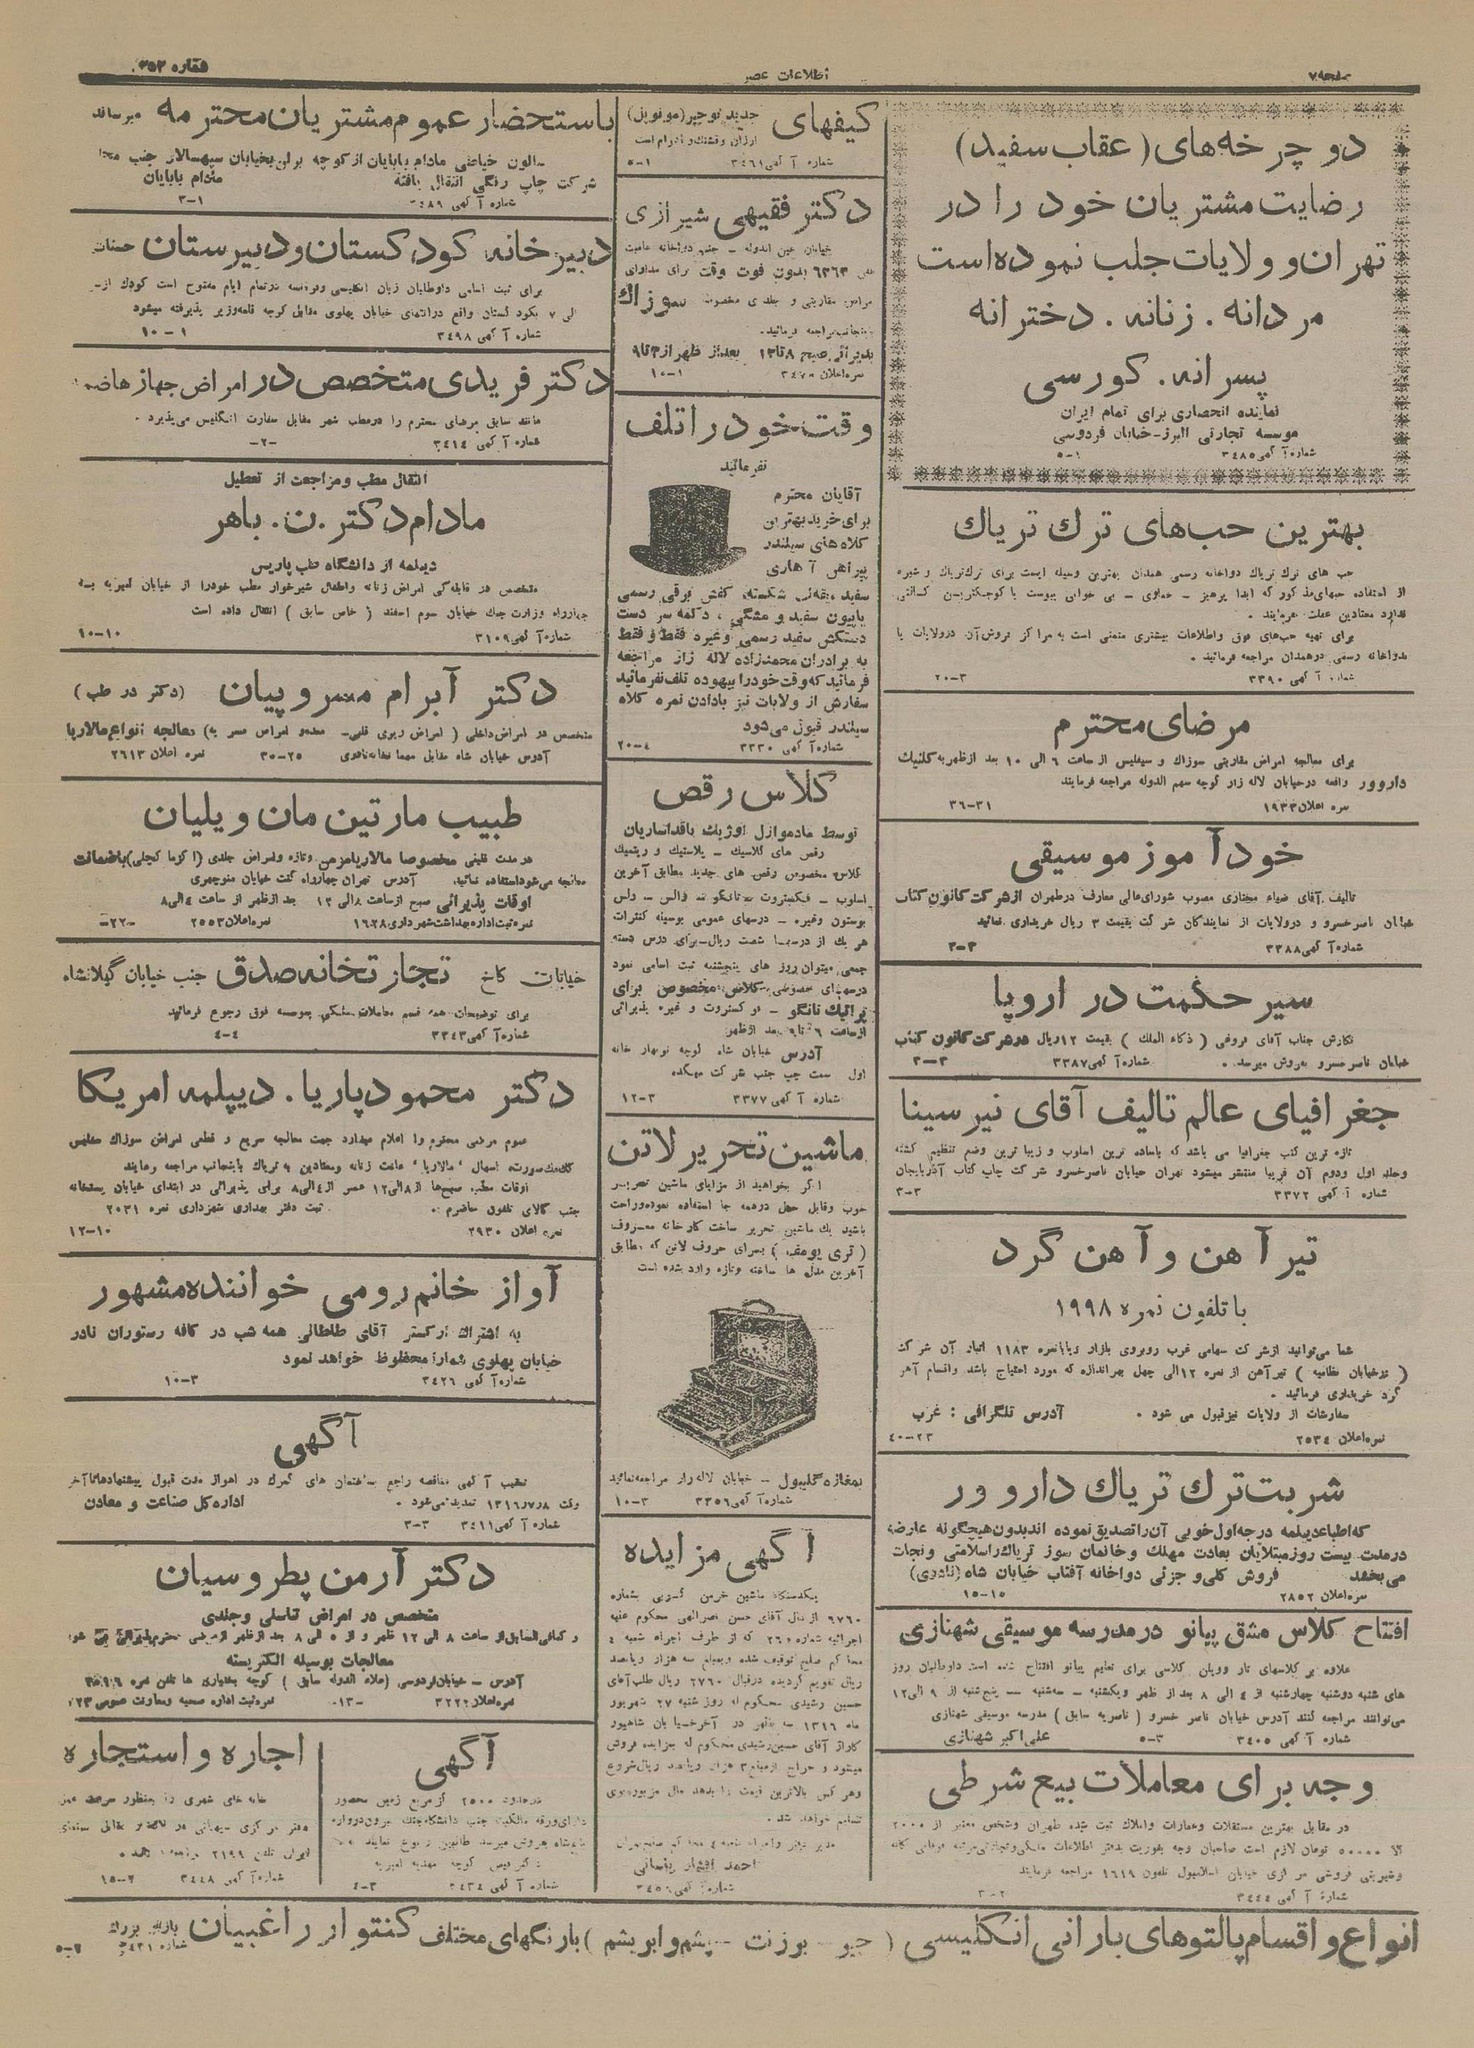 صفحه ۷
اطلاعات عصر
شماره ۳۵۳
دو چرخه‌های (عقاب سفید)
رضایت مشتریان خود را در
تهران و ولایات جلب نموده است
مردانه . زنانه . دخترانه
پسرانه . کورسی
نماینده انحصاری برای تمام ایران
موسسه تجارتی البرز-خیابان فردوسی
شماره آگهی ۳۴۸۵ ۱-۵
بهترین حب‌های ترك تریاك
حب های ترك تریاك دواخانه رسمی همدان بهترین وسیله ایست برای ترك تریاك و شیره
از استفاده حبهای مذکور که ابدا پرهیز - خماری - بی خوابی یبوست یا کوچکترین کسالتی
ندارد معتادین غفلت ننمایند .
برای تهیه حب‌های فوق و اطلاعات بیشتری متمنی است به مراکز فروش آن در ولایات یا
بدواخانه رسمی در همدان مراجعه فرمائید .
شماره آگهی ۳۳۹۰ ۳-۲۰
مرضای محترم
برای معالجه امراض مقاربتی سوزاك و سیفلیس از ساعت ۶ الی ۱۰ بعد از ظهر به کلنیك
داروور واقعه در خیابان لاله زار کوچه سهم الدوله مراجعه فرمایند
نمره اعلان ۱۹۳۳ ۳۱-۳۶
خودآموز موسیقی
تالیف آقای ضیاء مختاری مصوب شورای عالی معارف در طهران از شرکت کانون کتاب
خیابان ناصر خسرو و در ولایات از نمایندگان شرکت بقیمت ۳ ریال خریداری نمائید
شماره آگهی ۳۳۸۸ ۳-۳
سیر حکمت در اروپا
نگارش جناب آقای فروغی (ذکاء الملك) بقیمت ۱۲ ریال در شرکت کانون کتاب
خیابان ناصر خسرو بفروش میرسد . شماره آگهی ۳۳۸۷ ۳-۳
جغرافیای عالم تالیف آقای نیرسینا
تازه ترین کتب جغرافیا می باشد که باساده ترین اسلوب و زیبا ترین وضع تنظیم گشته
وجلد اول ودوم آن قریبا منتشر میشود تهران خیابان ناصر خسرو شرکت چاپ کتاب آذربایجان
شماره آگهی ۳۳۷۲ ۳-۳
تیرآهن و آهن گرد
با تلفون نمره ۱۹۹۸
شما می‌توانید از شرکت سهامی غرب روبروی بازار یا نمره ۱۱۸۳ انبار آن شرکت
(در خیابان نظامیه) تیرآهن از نمره ۱۲ الی چهل بهر اندازه که مورد احتیاج باشد واقسام آهن
گرد خریداری فرمائید .
سفارشات از ولایات نیز قبول می شود . آدرس تلگرافی : غرب
نمره اعلان ۲۵۳۴ ۲۳-۴۰
شربت ترك تریاك داروور
که اطباء دیپلمه درجه اول خوبی آن را تصدیق نموده اند بدون هیچگونه عارضه
در مدت بیست روز مبتلایان بعادت مهلك و خانمان سوز تریاك را سلامتی و نجات
می‌بخشد فروش کلی و جزئی دواخانه آفتاب خیابان شاه (نادری)
نمره اعلان ۲۸۵۲ ۱۵-۱۵
افتتاح کلاس مشق پیانو در مدرسه موسیقی شهنازی
علاوه بر کلاسهای تار و ویلن کلاسی برای تعلیم پیانو افتتاح شده است داوطلبان روز
های شنبه دوشنبه چهارشنبه از ۴ الی ۸ بعد از ظهر و یکشنبه - سه‌شنبه - پنج‌شنبه از ۹ الی ۱۲
می‌توانند مراجعه کنند آدرس خیابان ناصر خسرو (ناصریه سابق) مدرسه موسیقی شهنازی
علی اکبر شهنازی
شماره آگهی ۳۴۰۵ ۳-۵
وجه برای معاملات بیع شرطی
در مقابل بهترین مستقلات وعمارات واملاك ثبت شده طهران وشخص معتبر از ۲۰۰۰
الا ۵۰۰۰۰ تومان لازم است صاحبان وجه بفوریت بدفتر اطلاعات ملکی
مرکزی خیابان اسلامبول تلفون ۱۶۱۹ مراجعه فرمایند
شماره آگهی ۳۴۴۴ ۲-۳
کیفهای جدید توچیر (مونوپل)
ارزان وقشنك و بادوام است
شماره آگهی ۳۴۶۱ ۱-۵
دکتر فقیهی شیرازی
خیابان عین الدوله - جنب دواخانه
تلفن ۶۳۶۳ بدون فوت وقت برای مداوای
امراض مقاربتی و جلدی مخصوصا سوزاك
باینجانب مراجعه فرمائید .
پذیرائی صبح ۸ تا ۱۲ بعد از ظهر از ۳ تا ۹
نمره اعلان ۳۴۷۰ ۱-۱۰
وقت خود را تلف
نفرمائید
آقایان محترم
برای خرید بهترین
کلاه های سیلندر
پیراهن آهاری
سفید یقه‌ی شکسته کفش برقی رسمی
پاپیون سفید و مشگی ، دکمه سردست
دستکش سفید رسمی و غیره فقط و فقط
به برادران محمدزاده لاله زار مراجعه
فرمائید که وقت خود را بیهوده تلف نفرمائید
سفارش از ولایات نیز با دادن نمره کلاه
سیلندر قبول می‌شود
شماره آگهی ۳۳۳۰ ۴-۲۰
کلاس رقص
توسط مادموازل اوژیك باقداساریان
رقص های کلاسیك - پلاستیك و ریتمیك
کلاس مخصوص رقص های جدید مطابق آخرین
اسلوب - فکستروت - تانگو - والس - والس
بوستون وغیره - درسهای عمومی بوسیله کنترات
هر یك از درسها شصت ریال - برای درس دسته
جمعی میتوان روز های پنجشنبه ثبت اسامی نمود
درسهای خصوصی - کلاس مخصوص برای
پراتیك تانگو - فوکستروت و غیره پذیرائی
از ساعت ۶ تا ۹ بعد از ظهر
آدرس خیابان شاه کوچه نوبهار خانه
اول سمت چپ جنب شرکت میکده
شماره آگهی ۳۳۷۷ ۳-۱۲
ماشین تحریر لاتن
اگر بخواهید از مزایای ماشین تحریر
خوب وقابل حمل در همه جا استفاده نموده و راحت
باشید یك ماشین تحریر ساخت کارخانه معروف
(تری یومف) برای حروف لاتن که مطابق
آخرین مدل ها ساخته و تازه وارد شده است
بمغازه گلیبول - خیابان لاله زار مراجعه نمائید
شماره آگهی ۳۳۵۶ ۳-۱۰
آگهی مزایده
یکدستگاه ماشین خرمن کوبی بشماره
۶۷۶۰ از مال آقای حسن نصرالهی محکوم علیه
اجرائیه شماره ۲۶۰ که از طرف اجراء شعبه ۴
محاکم صلح توقیف شده و بمبلغ سه هزار ریال
تقویم گردیده در قبال ۲۷۶۰ ریال طلب آقای
حسین رشیدی محکوم له روز شنبه ۲۷ شهریور
ماه ۱۳۱۶ سه بظهر در آخر خیابان شاهپور
گاراژ آقای حسین رشیدی محکوم له بمزایده فروش
میشود و حراج از مبلغ ۳ هزار ریال شروع
و هر کس بالاترین قیمت را بدهد مال مزبور بوی
تسلیم خواهد شد .
مدیر دفتر واجراء شعبه ۴ محاکم صلح تهران
احمد افشار
باستحضار عموم مشتریان محترمه میرساند
سالون خیاطی مادام بابایان از کوچه برلن بخیابان سپهسالار جنب
شرکت چاپ رنگی انتقال یافته مادام بابایان
شماره آگهی ۳۴۸۹ ۱-۳
دبیرخانه کودکستان و دبیرستان
برای ثبت اسامی داوطلبان زبان انگلیسی وفرانسه در تمام ایام مفتوح است کودك از
الی ۷ بکودکستان واقع در انتهای خیابان پهلوی مقابل کوچه قلمه وزیر پذیرفته میشود
شماره آگهی ۳۴۹۸ ۱-۱۰
دکتر فریدی متخصص در امراض جهاز هاضمه
مانند سابق مرضای محترم را در مطب شهر مقابل سفارت انگلیس می‌پذیرد .
شماره آگهی ۳۴۱۴ -۲-
انتقال مطب و مراجعت از تعطیل
مادام دکتر .ن. باهر
دیپلمه از دانشگاه طب پاریس
متخصص در قابلگی امراض زنانه واطفال شیرخوار مطب خود را از خیابان امیریه به
چهارراه وزارت جنك خیابان سوم اسفند (خاص سابق) انتقال داده است
شماره آگهی ۳۱۰۹ ۱۰-۱۰
دکتر آبرام مسروپیان (دکتر در طب)
متخصص در امراض داخلی (امراض ریوی قلبی- معده و امراض مسریه) معالجه انواع مالاریا
آدرس خیابان شاه مقابل مهمانخانه نادری ۲۵-۳۰ نمره اعلان ۲۶۱۳
طبیب مارتین مان ویلیان
در مدت قلیلی مخصوصا مالاریا مزمن وتازه وامراض جلدی (اگزما کچلی) باضمانت
معالجه می‌شود استفاده نمائید . آدرس تهران چهارراه کنت خیابان منوچهری
اوقات پذیرائی صبح از ساعت ۸ الی ۱۲ بعد از ظهر از ساعت ۴ الی ۸
نمره ثبت اداره بهداشت شهرداری ۱۶۲۸ نمره اعلان ۲۵۵۳ -۲۲-
خیابان کاخ تجارتخانه صدق جنب خیابان گیلانشاه
برای توضیحات همه قسم معاملات ملکی بموسسه فوق رجوع فرمائید
شماره آگهی ۳۳۴۳ ۴-۴
دکتر محمود پاریا . دیپلمه امریکا
عموم مرضی محترم را اعلام میدارد جهت معالجه سریع و قطعی امراض سوزاك سفلیس
كك مك صورت، اسهال ’مالاریا‘ عادت زنانه ومعتادین به تریاك باینجانب مراجعه نمایند
اوقات مطب صبح‌ها از ۸ الی ۱۲ عصر از ۴ الی ۸ برای پذیرائی در ابتدای خیابان پستخانه
جنب کالای تلفون حاضرم . ثبت دفتر بهداری شهرداری نمره ۲۰۳۱
نمره اعلان ۲۹۳۰ ۱۰-۱۲
آواز خانم رومی خواننده مشهور
به اشتراك ارکستر آقای طاطائی همه شب در کافه رستوران نادر
خیابان پهلوی شما را محظوظ خواهد نمود
شماره آگهی ۳۴۲۶ ۳-۱۰
آگهی
تعقیب آگهی مناقصه راجع بساختمان های گمرك در اهواز مدت قبول پیشنهادها تا آخر
وقت ۱۳۱۶/۷/۸ تمدید می‌شود . اداره کل صناعت و معادن
شماره آگهی ۳۴۱۱ ۳-۳
دکتر آرمن پطروسیان
متخصص در امراض تناسلی و جلدی
و کمافی‌السابق از ساعت ۸ الی ۱۲ ظهر و از ۵ الی ۸ بعد از ظهر از مرضی محترم پذیرائی می شود
معالجات بوسیله الکتریسته
آدرس - خیابان فردوسی (علاء الدوله سابق) کوچه بختیاری ها تلفن نمره
نمره اعلان ۳۲۲۲ -۱۳- نمره ثبت اداره صحیه ومعاونت عمومی
آگهی
در حدود ۲۵۰۰ گز مربع زمین محصور
دارای ورقه مالکیت جنب دانشگاه جنك بیرون دروازه
بفروش میرسد طالبین رجوع نمایند
کوچه مهدیه امیریه
شماره آگهی ۳۴۳۴ ۳-۴
اجاره و استجاره
خانه های شهری را بمنظور سرعت عمل
دفتر مرکزی
ایران تلفن ۲۱۹۹
شماره آگهی ۳۴۴۸ ۲-۱۵
انواع و اقسام پالتوهای بارانی انگلیسی (جیر - بوزنت - پشم و ابریشم) با رنگهای مختلف کنتوار راغبیان بازار بزرك
شماره ۳۴۳۱